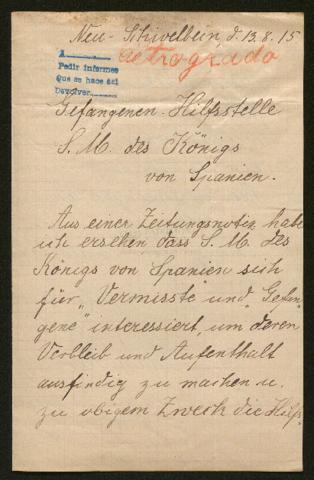 Neu-Schivelbein d. 13.8.15
A
Petrogrado
Pedir informes
Que se hace así
Devolver
Gefangenen-Hilfsstelle
S. M. des Königs
von Spanien.
Aus einer Zeitungsnotiz habe
ich ersehen dass S. M. des
Königs von Spanien sich
für „Vermisste und „Gefan-
gene" interessiert, um deren
Verbleib und Aufenthalt
ausfindig zu machen u.
zu obigem Zweck die Hilfs-